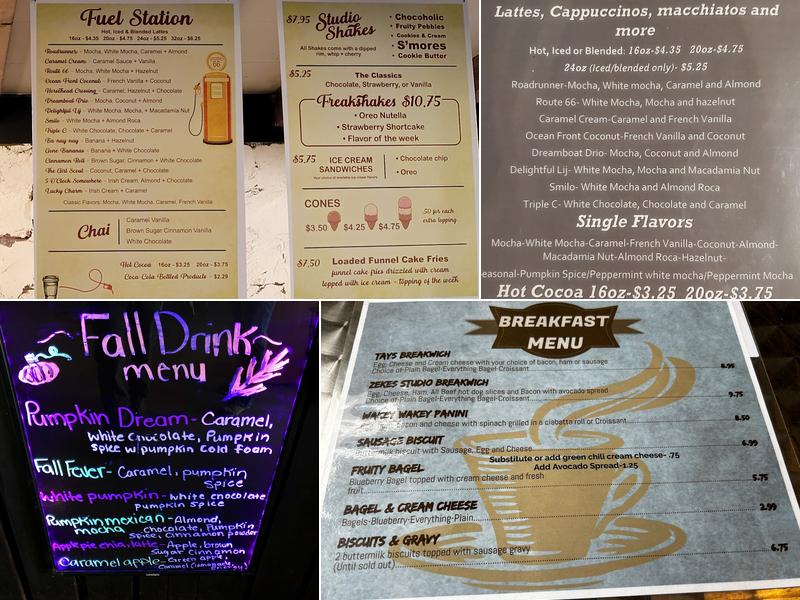 Fuel Station
Hot, Iced & Blended Lattes
16oz - $4.35 20oz - $4.75 24oz - $5.25 32oz - $6.25
Roadrunner - Mocha, White Mocha, Caramel + Almond
Caramel Cream - Caramel Sauce + Vanilla
Route 66 - Mocha, White Mocha + Hazelnut
Ocean Front Coconut - French Vanilla + Coconut
Horsehead Crossing - Caramel, Hazelnut + Chocolate
Dreamboat Drio - Mocha, Coconut + Almond
Delightful Lij - White Mocha, Mocha, + Macadamia Nut
Smilo - White Mocha + Almond Roca
Triple C - White Chocolate, Chocolate + Caramel
Ba nay nay - Banana + Hazelnut
Banana + White Chocolate
Cinnamon Roll - Brown Sugar, Cinnamon + White Chocolate
The Girl Scout - Coconut, Chocolate + Caramel
5 O'Clock Somewhere - Irish Cream, Almond + Chocolate
Lucky Charm - Irish Cream + Caramel
Classic Flavors: Mocha, White Mocha, Caramel, French Vanilla
Chai
Caramel Vanilla
Brown Sugar Cinnamon Vanilla
White Chocolate
Hot Cocoa 16oz - $3.25 20oz - $3.75
Coca-Cola Bottled Products - $2.29
$7.95 Studio Shakes
All Shakes come with a dipped
rim, whip + cherry
• Chocoholic
• Fruity Pebbles
• Cookies & Cream
• S'mores
• Cookie Butter
$5.25
The Classics
Chocolate, Strawberry, or Vanilla
Freakshakes $10.75
• Oreo Nutella
• Strawberry Shortcake
• Flavor of the week
$5.75 ICE CREAM
SANDWICHES
Your choice of available ice cream flavors
• Chocolate chip
• Oreo
CONES
$3.50 $4.25 $4.75
.50 for each
extra topping
$7.50 Loaded Funnel Cake Fries
funnel cake fries drizzled with cream
topped with ice cream + topping of the week
Lattes, Cappuccinos, macchiatos and
more
Hot, Iced or Blended: 16oz-$4.35 20oz-$4.75
24oz (Iced/blended only)- $5.25
Roadrunner-Mocha, White mocha, Caramel and Almond
Route 66- White Mocha, Mocha and hazelnut
Caramel Cream-Caramel and French Vanilla
Ocean Front Coconut-French Vanilla and Coconut
Dreamboat Drio- Mocha, Coconut and Almond
Delightful Lij- White Mocha, Mocha and Macadamia Nut
Smilo- White Mocha and Almond Roca
Triple C- White Chocolate, Chocolate and Caramel
Single Flavors
Mocha-White Mocha-Caramel-French Vanilla-Coconut-Almond-
Macadamia Nut-Almond Roca-Hazelnut-
easonal-Pumpkin Spice/Peppermint white mocha/Peppermint Mocha
Hot Cocoa 16oz-$3.25 20oz-$3.75
Fall Drink
menu
Pumpkin Dream - Caramel,
white chocolate, Pumpkin
spice w/ pumpkin cold foam
Fall Fever - Caramel, pumpkin
spice
White pumpkin - white chocolate
pumpkin spice
Pumpkin mexican - Almond,
mocha chocolate, Pumpkin
spice, cinnamon powder
Apple pie chia latte - Apple, brown
sugar cinnamon
Caramel apple - Green apple,
BREAKFAST
MENU
TAYS BREAKWICH
Egg, Cheese and Cream cheese with your choice of bacon, ham or sausage
Choice of-Plain Bagel-Everything Bagel-Croissant 8.95
ZEKES STUDIO BREAKWICH
Egg, Cheese, Ham, All Beef hot dog slices and Bacon with avocado spread
Choice of-Plain Bagel-Everything Bagel-Croissant 9.75
WAKEY WAKEY PANINI
bacon and cheese with spinach grilled in a ciabatta roll or Croissant 8.50
SAUSAGE BISCUIT
Buttermilk biscuit with Sausage, Egg and Cheese 6.99
Substitute or add green chili cream cheese- .75
Add Avocado Spread-1.25
FRUITY BAGEL
Blueberry Bagel topped with cream cheese and fresh
fruit 5.75
BAGEL & CREAM CHEESE
Bagels-Blueberry-Everything-Plain 2.99
BISCUITS & GRAVY
2 buttermilk biscuits topped with sausage gravy
(Until sold out) 6.75